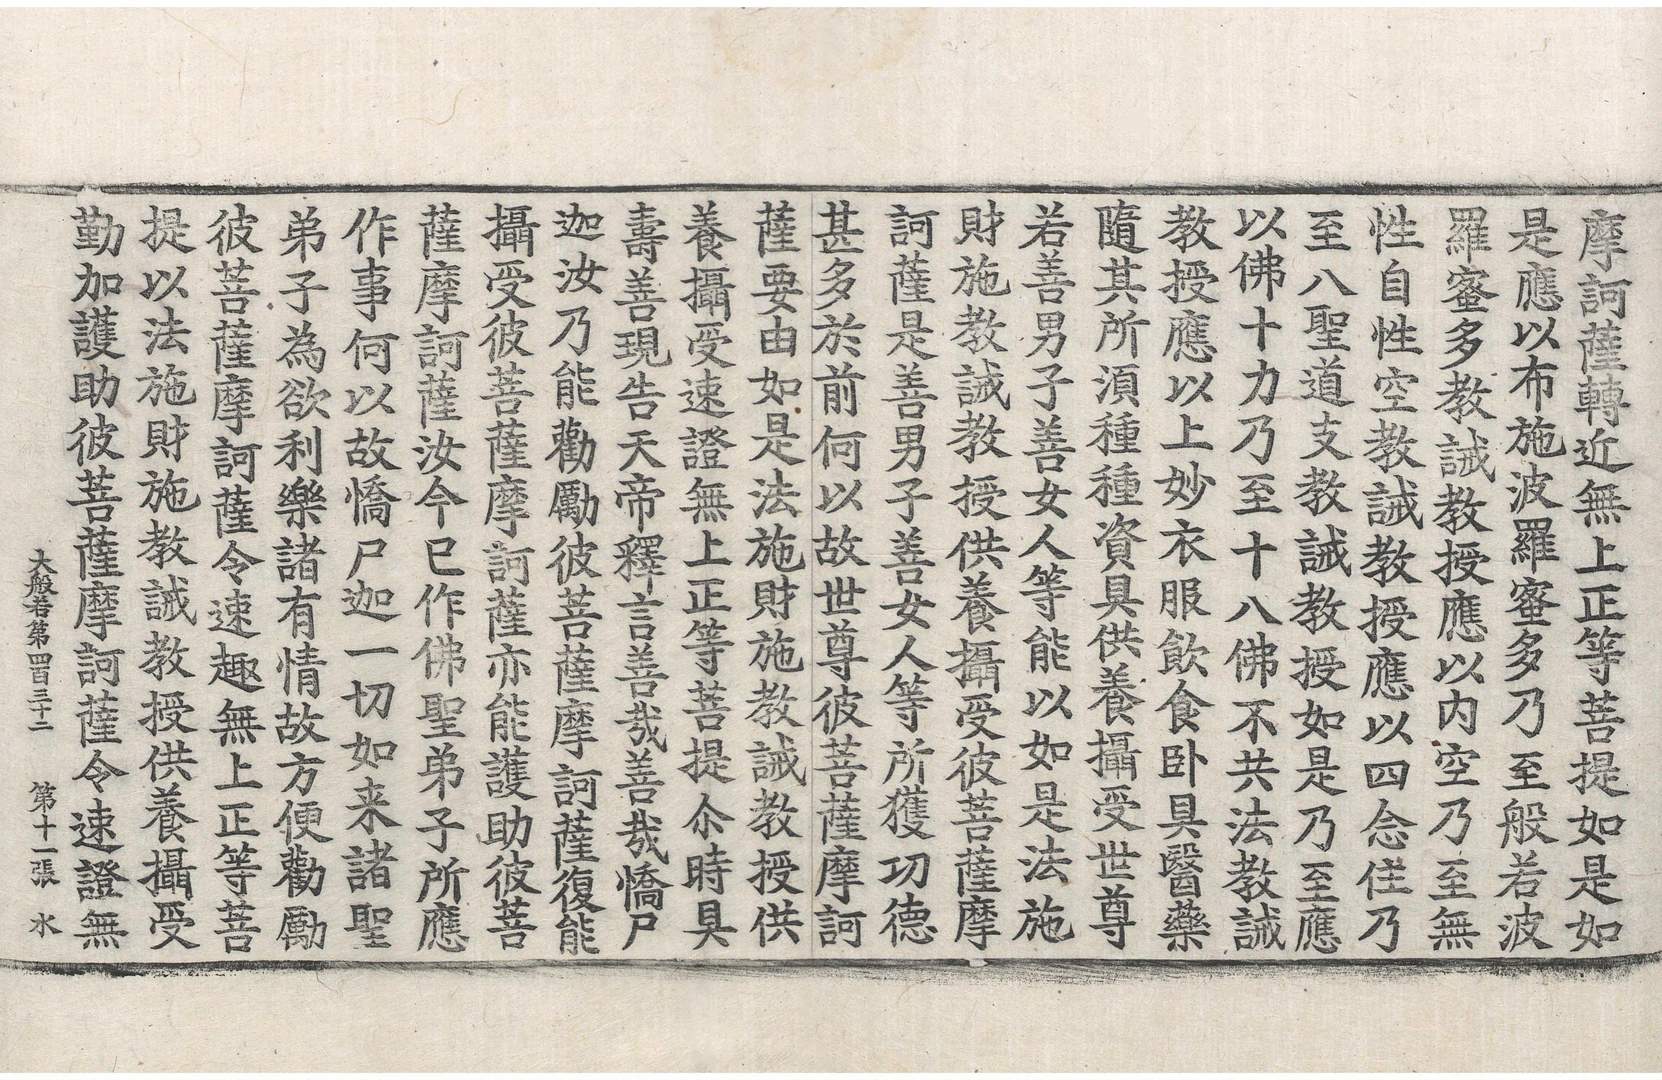 摩訶薩轉近無上正等菩提如是如
是應以布施波羅蜜多乃至般若波
羅蜜多教誡教授應以内空乃至無
性自性空教誡教授應以四念住乃
至八聖道支教誡教授如是乃至應
以佛十力乃至十八佛不共法教誡
教授應以上妙衣服飲食卧具醫藥
隨其所湏種種資具供養攝受世尊
若善男子善女人等能以如是法施
財施教誡教授供養攝受彼菩薩摩
訶薩是善男子善女人等所獲功德
甚多於前何以故世尊彼菩薩摩訶
薩要由如是法施財施教誡教授供
養攝受速證無上正等菩提尒時具
壽善現告天帝釋言善㢤善㢤憍尸
迦汝乃能勸勵彼菩薩摩訶薩復能
攝受彼菩薩摩訶薩亦能護助彼菩
薩摩訶薩汝今已作佛聖弟子所應
作事何以故憍尸迦一切如来諸聖
弟子為欲利樂諸有情故方便勸勵
彼菩薩摩訶薩令速趣無上正等菩
提以法施財施教誡教授供養攝受
勤加護助彼菩薩摩訶薩令速證無
大般若第四百三十二 第十一張 水